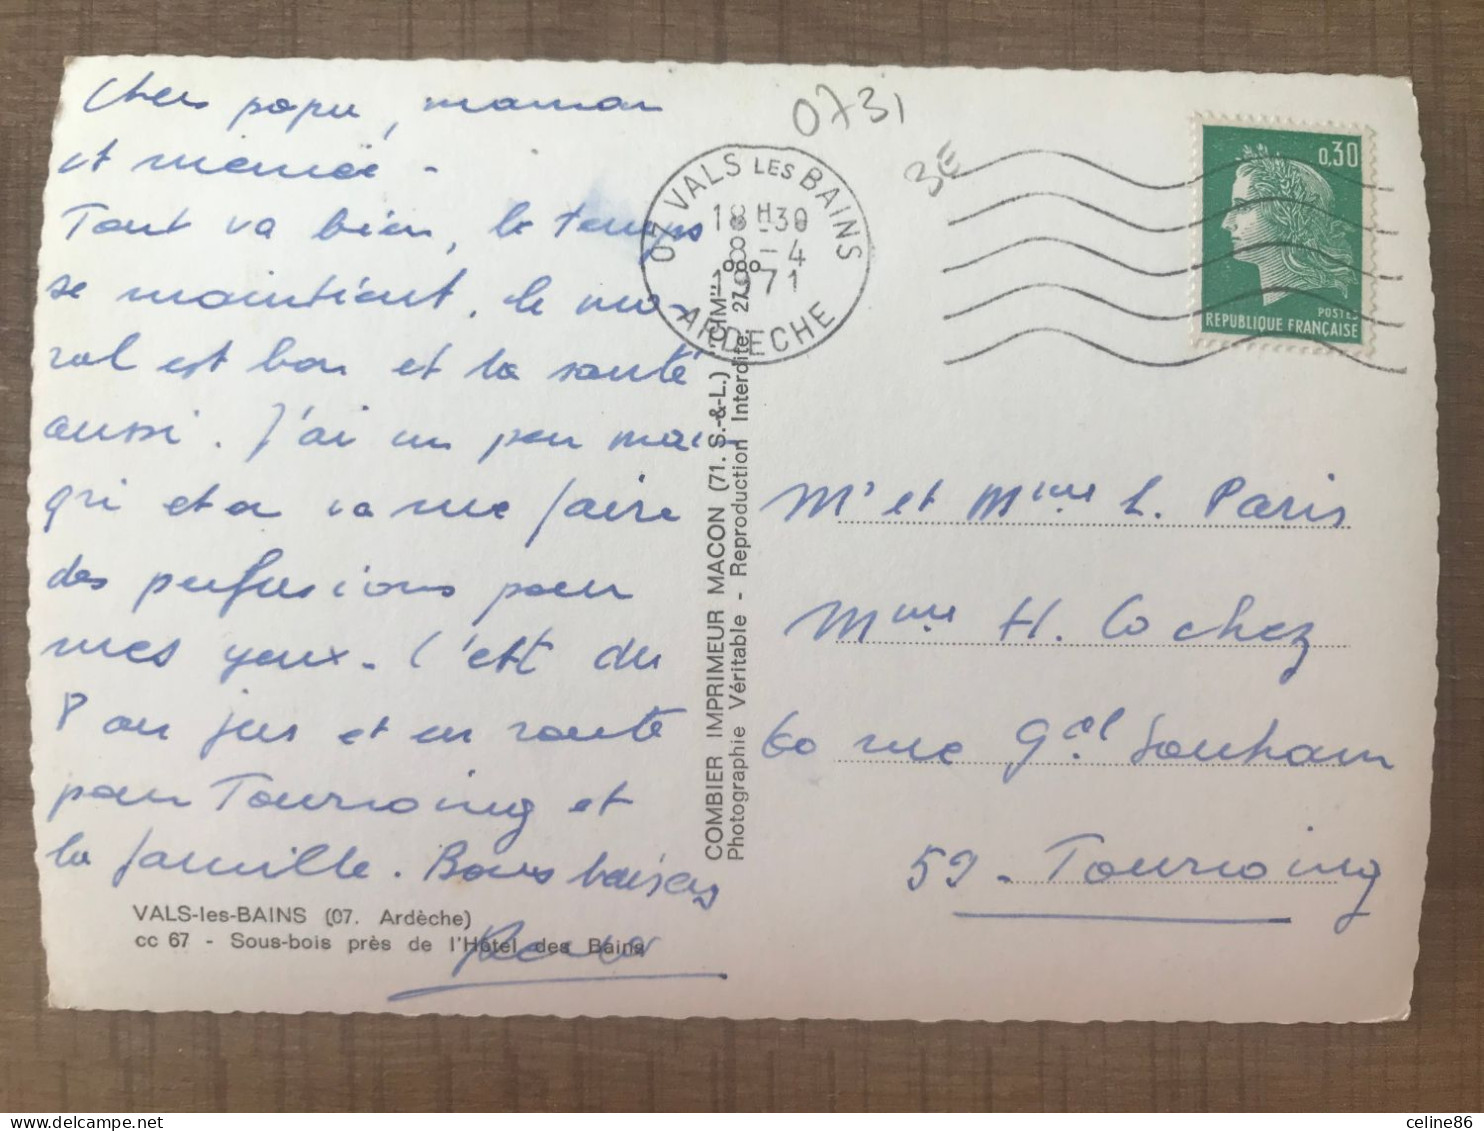 Chers papa, maman
et mémée -
Tout va bien, le temps
se maintient, le mo-
ral est bon et la santé
aussi. J'ai un peu mai-
gri et on va me faire
des perfusions pour
mes yeux. C'est du
8 au jus et en route
pour Tourcoing et
la famille. Bons baisers
VALS-les-BAINS (07. Ardèche)
cc 67 - Sous-bois près de l'Hôtel des Bains
COMBIER IMPRIMEUR MACON (71. S.-&-L.) "CIM"
Photographie Véritable - Reproduction Interdite
0731
3E
07 VALS LES BAINS
18H30
8-4
1971
ARDECHE
0,30
POSTES
REPUBLIQUE FRANÇAISE
Mr et Mme L. Paris
Mme H. Cochez
60 rue Gal Souham
59 - Tourcoing
celine86